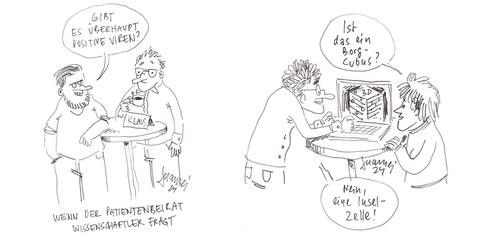 GIBT
ES ÜBERHAUPT
POSITIVE VIREN?
KLAUS
24
WENN DER PATIENTENBEIRAT
WISSENSCHAFTLER FRAGT
Ist
das ein
Borg-
Cubus?
3D
24
Nein,
eine Insel-
Zelle!